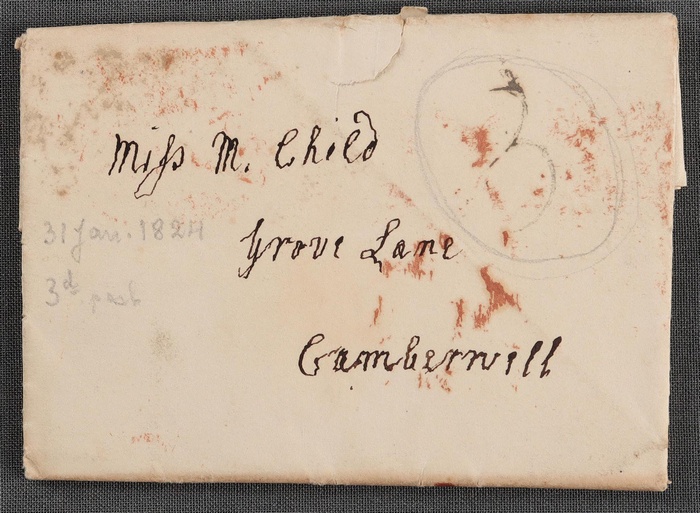 3
Miss M. Child
Grove Lane
Camberwell
31 Jan. 1824
3d post